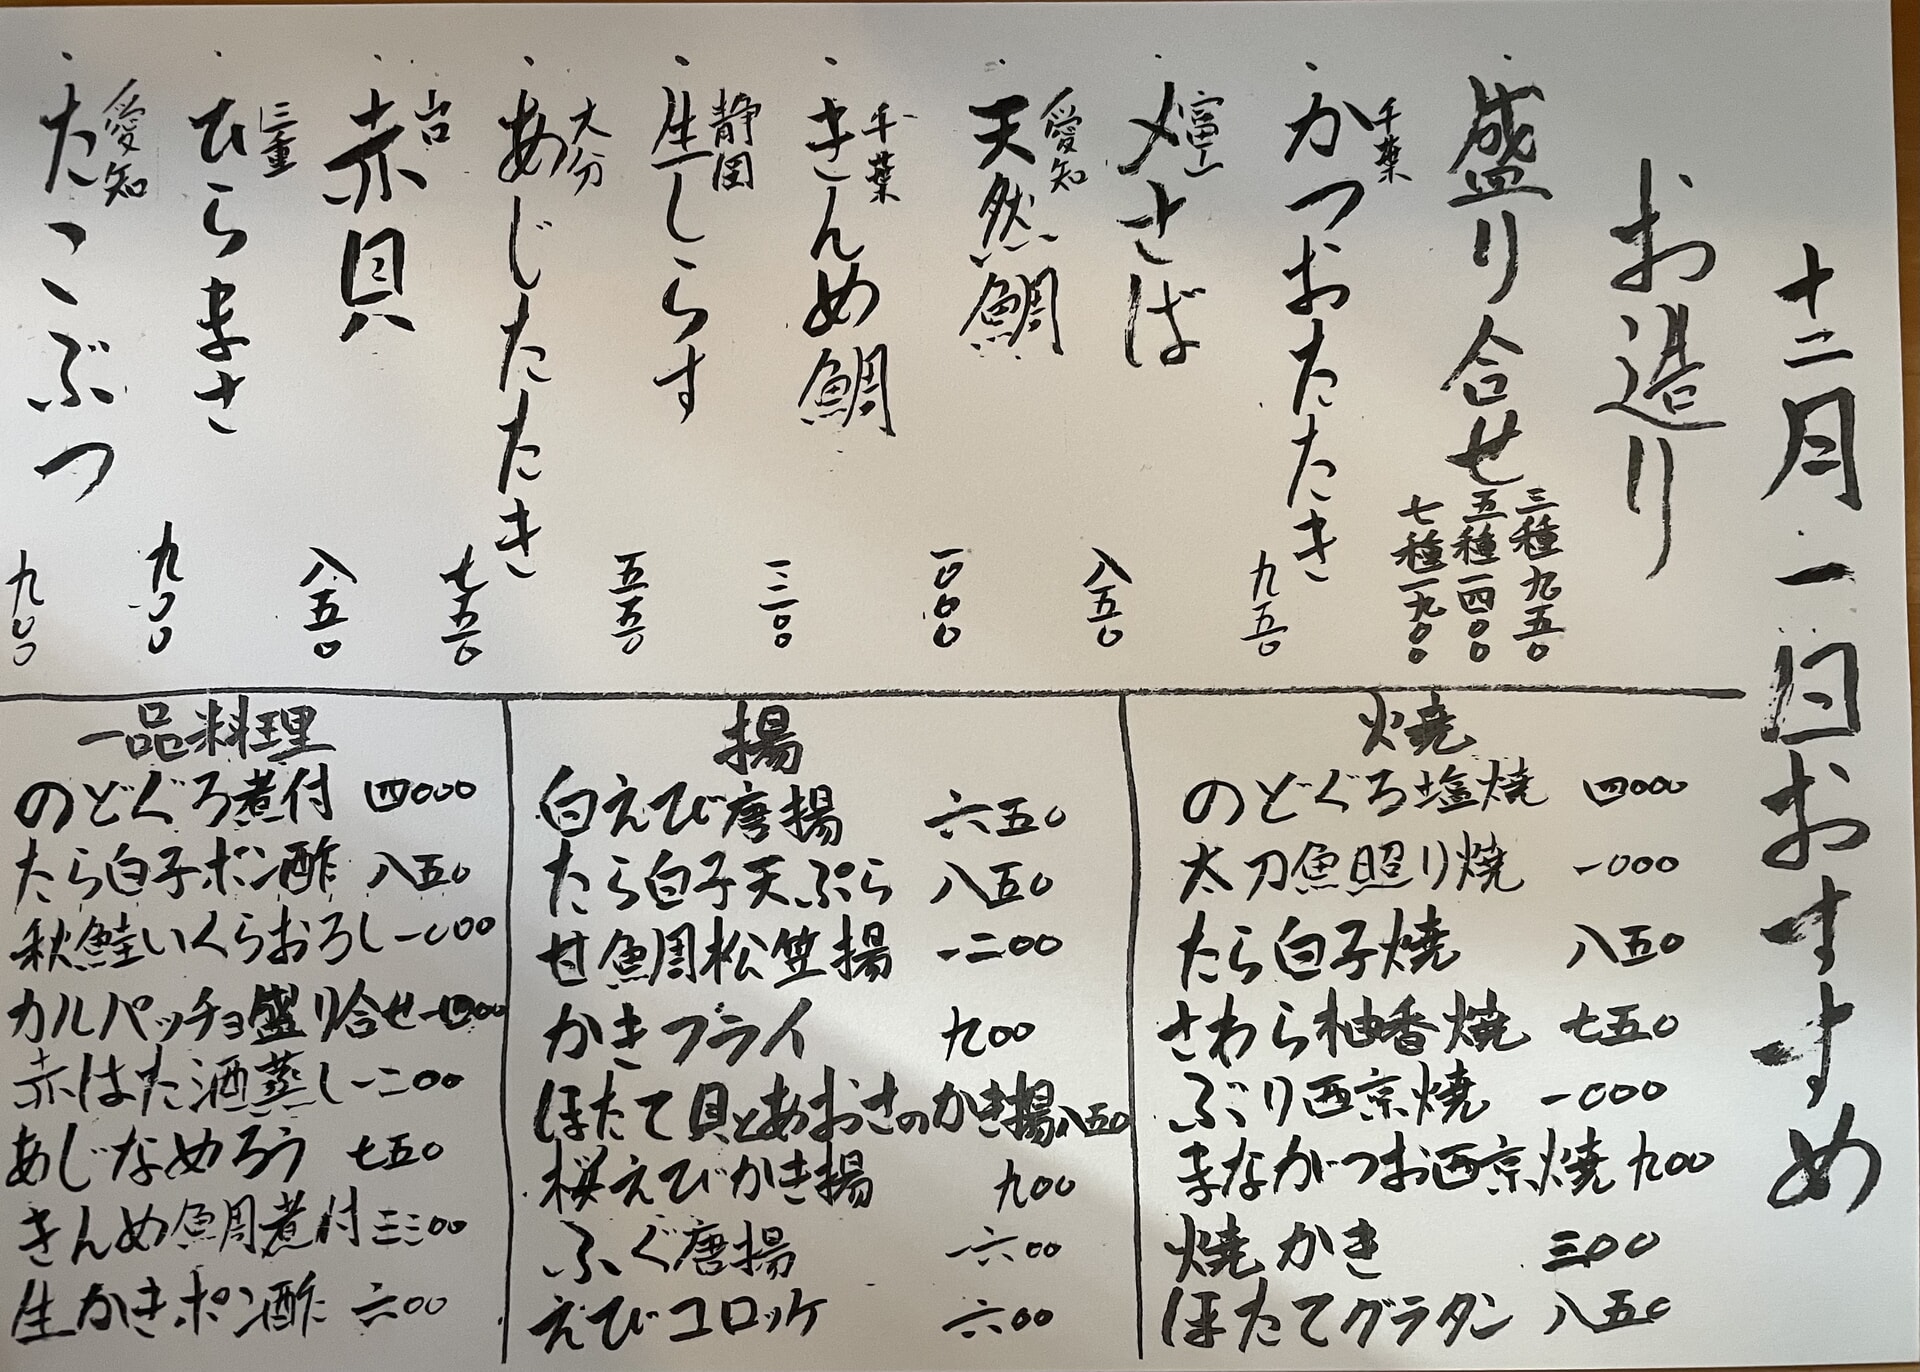 十二月一日おすすめ
お造り
盛り合せ
三種九五〇
五種一四〇〇
七種一九〇〇
・千葉 かつおたたき 九五〇
・富山 〆さば 八五〇
・愛知 天然鯛 一〇〇〇
・千葉 きんめ鯛 一三〇〇
・静岡 生しらす 五五〇
・大分 あじたたき 七五〇
・赤貝 八五〇
・三重 ひらまさ 九〇〇
・愛知 たこぶつ 九〇〇
焼
のどぐろ塩焼 四〇〇〇
太刀魚照り焼 一〇〇〇
たら白子焼 八五〇
さわら柚香焼 七五〇
ぶり西京焼 一〇〇〇
まながつお西京焼 九〇〇
焼かき 三〇〇
ほたてグラタン 八五〇
揚
白えび唐揚 六五〇
たら白子天ぷら 八五〇
甘鯛松笠揚 一二〇〇
かきフライ 九〇〇
ほたて貝とあおさのかき揚 八五〇
桜えびかき揚 九〇〇
ふぐ唐揚 一六〇〇
えびコロッケ 六〇〇
一品料理
のどぐろ煮付 四〇〇〇
たら白子ポン酢 八五〇
秋鮭いくらおろし 一〇〇〇
カルパッチョ盛り合せ 一四〇〇
赤はた酒蒸し 一二〇〇
あじなめろう 七五〇
きんめ鯛煮付 三三〇〇
生かきポン酢 六〇〇